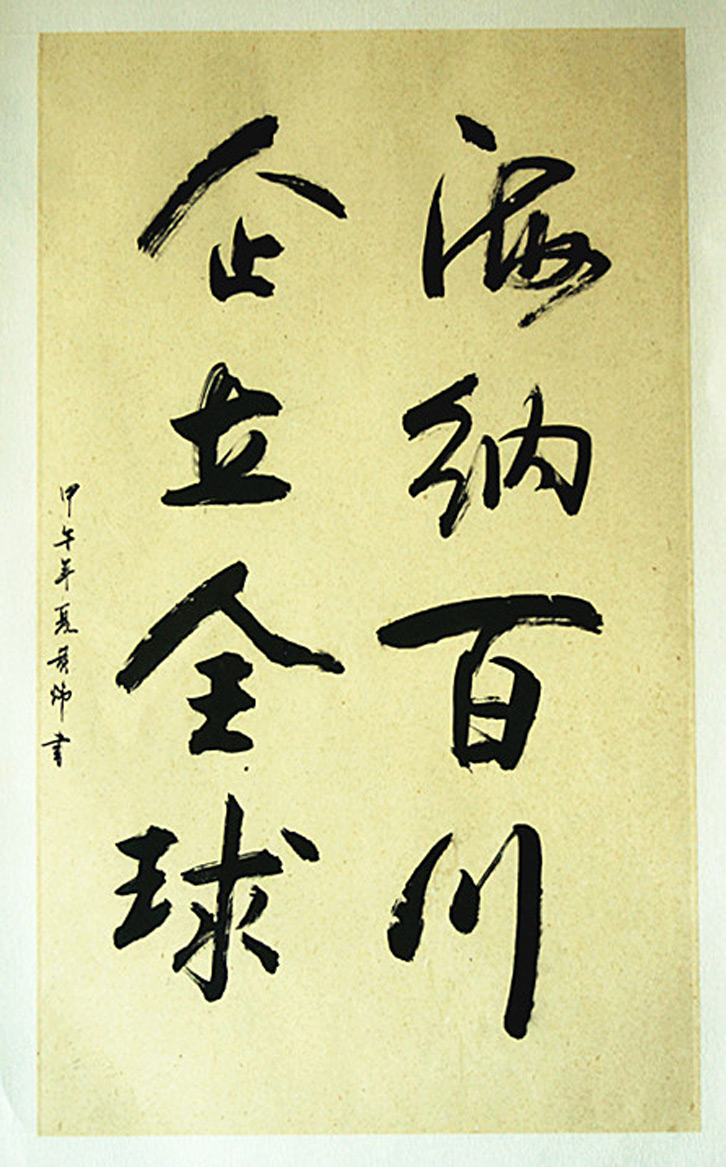 海纳百川
企立全球
甲午年夏 书